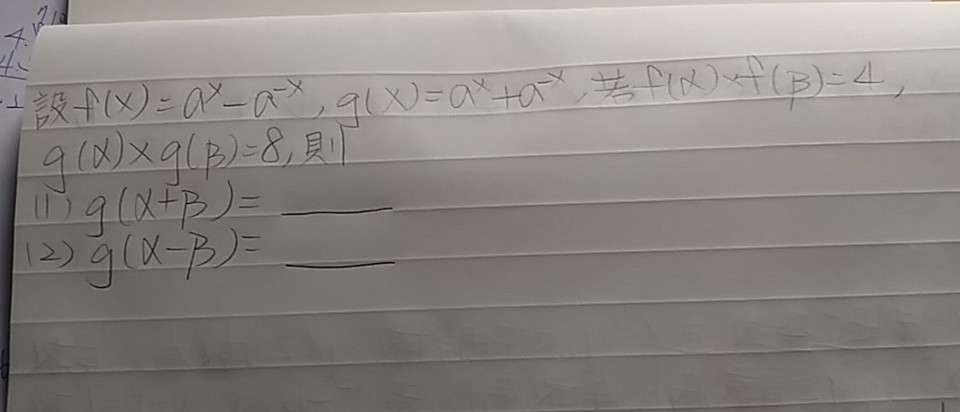 設 f(x) = aˣ - a⁻ˣ, g(x) = aˣ + a⁻ˣ, 若 f(α) × f(β) = 4,
g(α) × g(β) = 8, 則
(1) g(α+β) = ____
(2) g(α-β) = ____